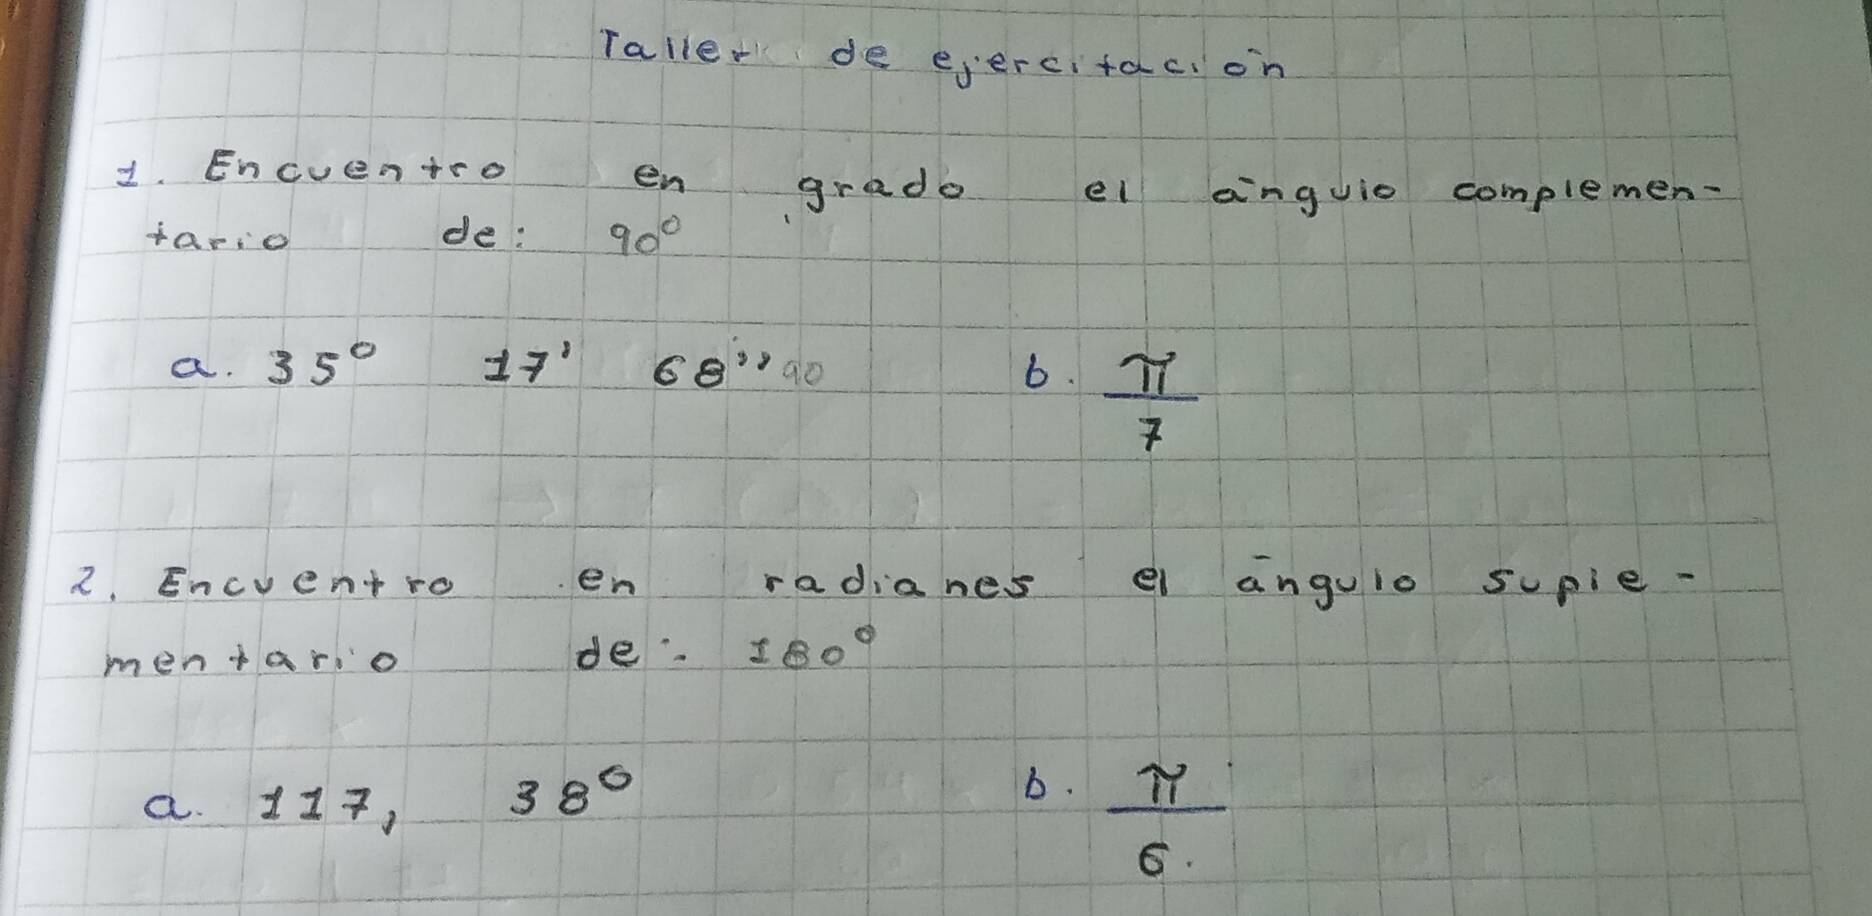 Taller de ejercitación
1. Encuentro en grado el ángulo complemen-
tario de: 90°
a. 35° 17' 68'' 90 b. π/7
2. Encuentro en radianes el ángulo suple-
mentario de: 180°
a. 117, 38° b. π/6.